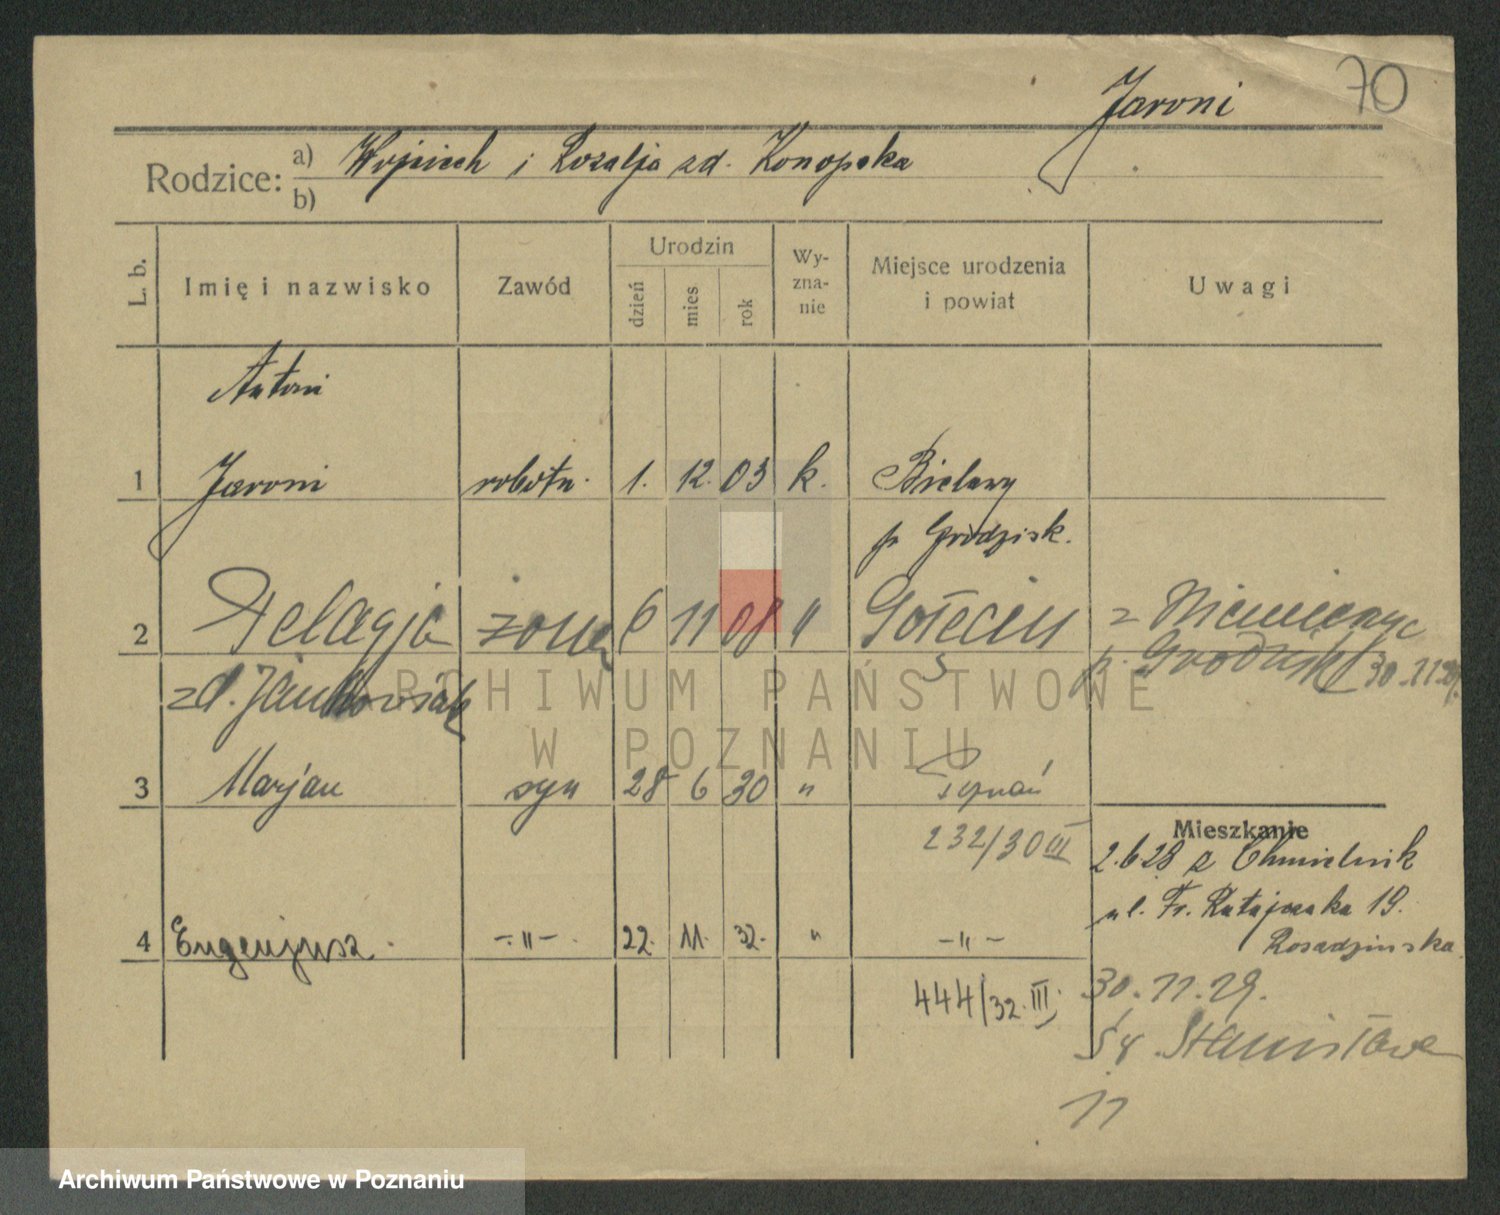 70
Jaroni
Rodzice: a) Wojciech i Rozalja zd. Konopska
b)
L. b. Imię i nazwisko Zawód Urodzin dzień mies rok Wyznanie Miejsce urodzenia i powiat Uwagi
Antoni
1 Jaroni robotn. 1. 12. 03 k. Bielawy
p. Grodzisk.
2 Pelagja żona 6 11 08 " Gołęcin z
zd. p. Grodzisk 30.11.29.
3 Marjan syn 28 6 30 " Poznań
232/30 III
Mieszkanie
2.6 28 z Chmielnik
ul. Fr. Ratajczaka 19.
4 Eugenjusz. -"- 22. 11. 32. " -"-
444/32. III.
30.11.29.
Św. Stanisława
11
ARCHIWUM PAŃSTWOWE
W POZNANIU
Archiwum Państwowe w Poznaniu